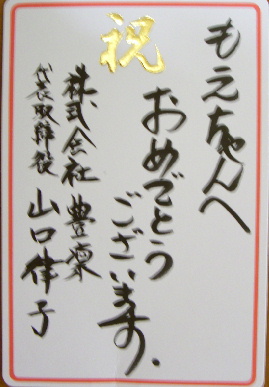 祝
もえちゃんへ
おめでとう
ございます。
株式会社 豊凛
代表取締役 山口律子